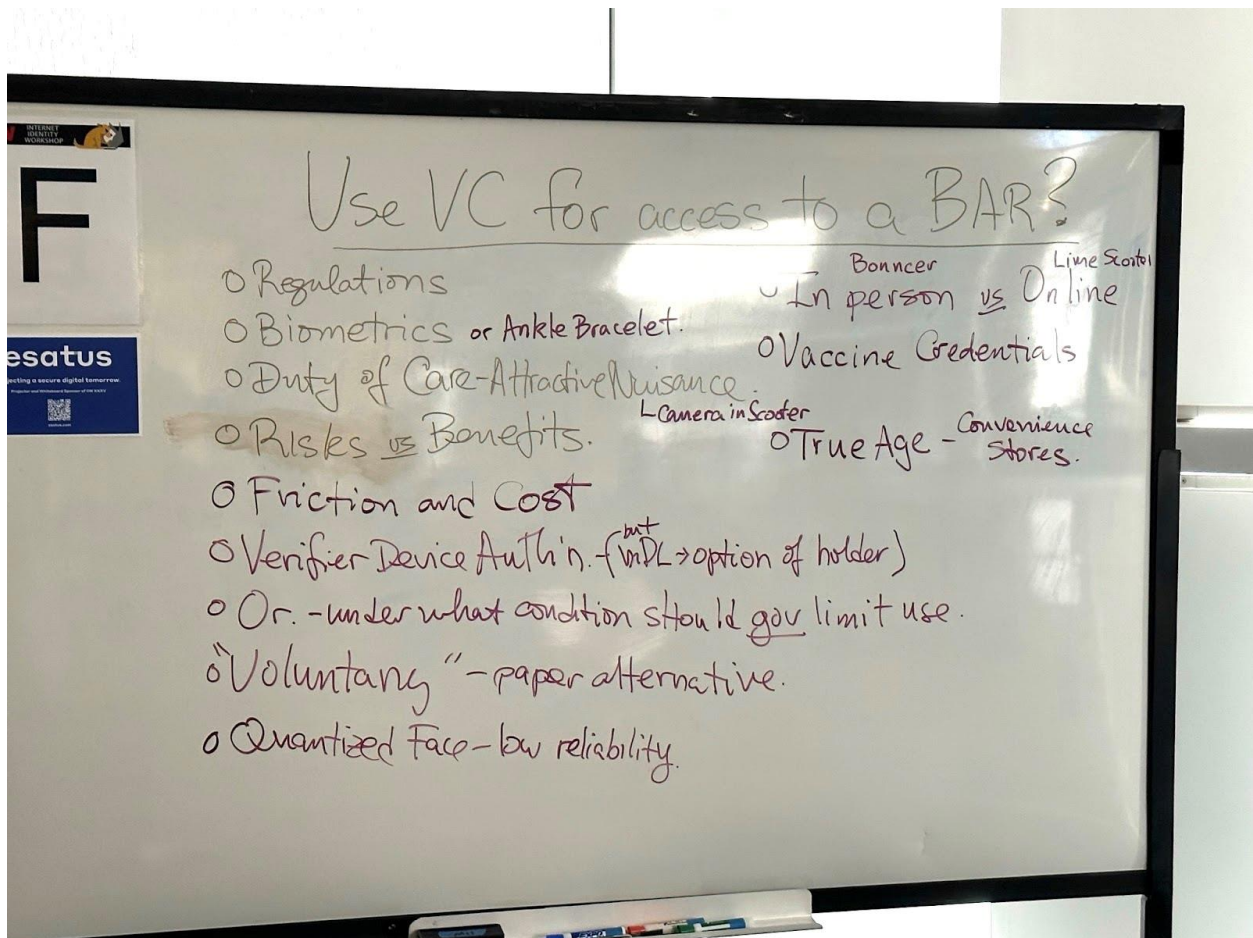 INTERNET
IDENTITY
WORKSHOP
F
esatus
jecting a secure digital tomorrow.
esatus.com
Use VC for access to a BAR?
o Regulations
o Biometrics or Ankle Bracelet.
o Duty of Care-Attractive Nuisance
└ Camera in Scooter
o Risks vs Benefits.
o Friction and Cost
o Verifier Device Auth'n. - (but mDL → option of holder)
o Or. - under what condition should gov limit use.
o "Voluntary" - paper alternative.
o Quantized Face - low reliability.
Bouncer
Lime Scooter
o In person vs Online
o Vaccine Credentials
o True Age - Convenience
Stores.
EXPO